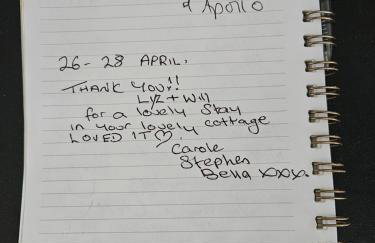 & Apollo
26 - 28 APRIL.
THANK YOU!!
LYZ + Will
for a lovely Stay
in your lovely cottage
LOVED IT ♡
Carole
Stephen
Bella xxxx.